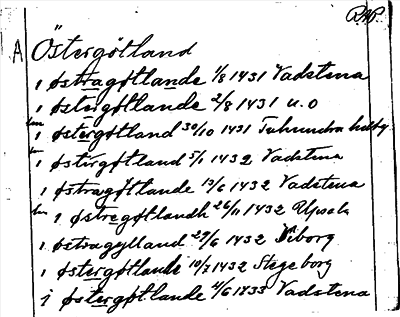 P.W.P.
A Östergötland
i østragøtlande 1/8 1431 Vadstena
i østergøtlande 2/8 1431 u. o
i østergøtland 30/10 1431 Tuhundra
i østirgøtland 5/1 1432 Vadstena
i østragøtlande 13/6 1432 Vadstena
i østregøtlandh 26/11 1432 Upsala
i østragylland 29/6 1432 Viborg
i østergøtlande 10/7 1432 Stegeborg
i østergøtlande 4/6 1433 Vadstena